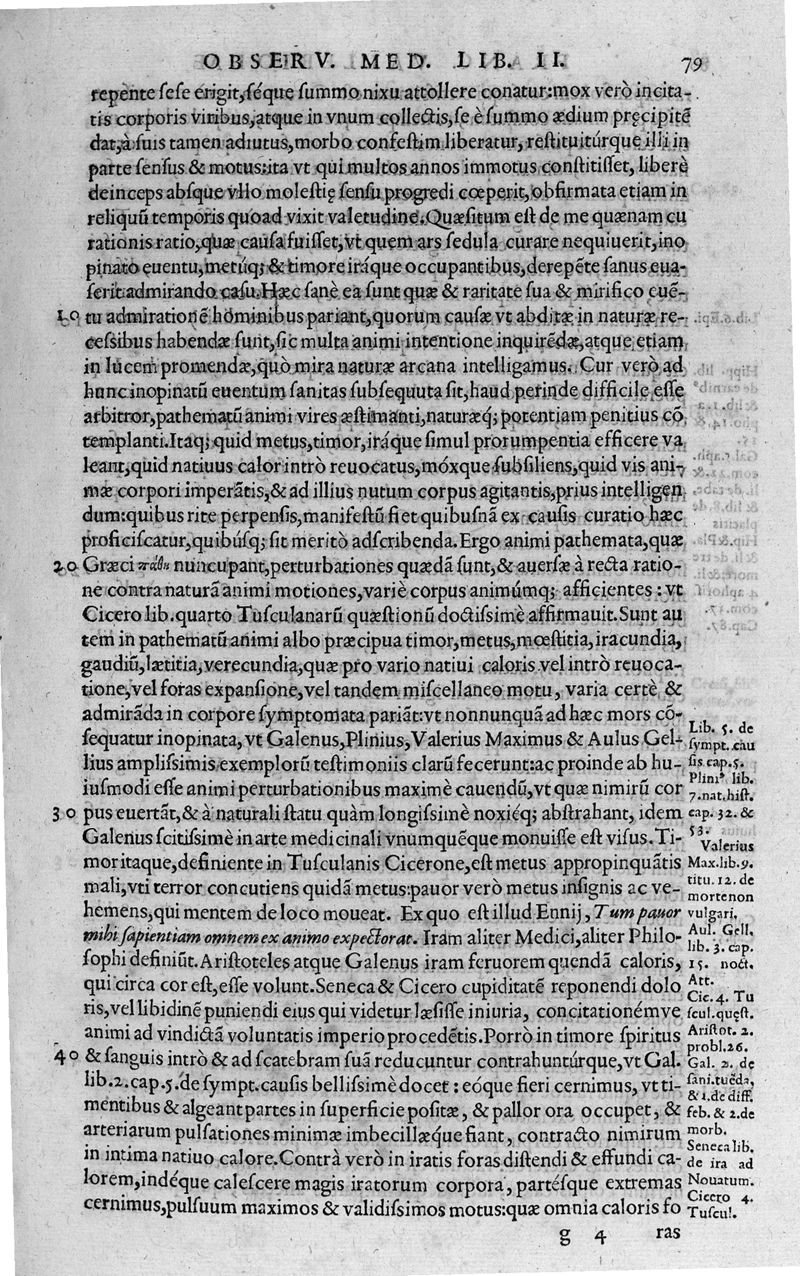 OBSERV. MED. LIB. II. 79
repente seſe erigit,ſéque ſummo nixu attollere conatur:mox verò incita-
tis corporis viribus,atque in vnum collectis,ſe è ſummo ædium pręcipitē
dat,à ſuis tamen adiutus,morbo confeſtim liberatur, reſtituitúrque illi in
parte ſenſus & motus:ita vt qui multos annos immotus conſtitiſſet, liberè
deinceps abſque vllo moleſtię ſenſu progredi cœperit,obfirmata etiam in
reliquū temporis quoad vixit valetudine.Quæſitum eſt de me quænam cu
rationis ratio,quæ cauſa fuiſſet,vt quem ars ſedula curare nequiuerit,ino
pinato euentu,metúq; & timore iráque occupantibus,derepēte ſanus eua-
ſerit admirando caſu.Hæc ſanè ea ſunt quæ & raritate ſua & mirifico euē-
10 tu admirationē hominibus pariant,quorum cauſæ vt abditæ in naturæ re-
ceſſibus habendæ ſunt,ſic multa animi intentione inquirēdæ,atque etiam
in lucem promendæ,quò mira naturæ arcana intelligamus. Cur verò ad
hunc inopinatū euentum ſanitas ſubſequuta ſit,haud perinde difficile eſſe
arbitror,pathematū animi vires æſtimanti,naturæq; potentiam penitius cō
templanti.Itaq; quid metus,timor,iráque ſimul prorumpentia efficere va
leant,quid natiuus calor intrò reuocatus,móxque ſubſiliens,quid vis ani-
mæ corpori imperātis,& ad illius nutum corpus agitantis,prius intelligen
dum:quibus rite perpenſis,manifeſtū fiet quibuſnā ex cauſis curatio hæc
proficiſcatur,quibúſq; ſit meritò adſcribenda.Ergo animi pathemata,quæ
20 Græci πάθη nuncupant,perturbationes quædā ſunt,& auerſæ à recta ratio-
ne contra naturā animi motiones,variè corpus animúmq; afficientes : vt
Cicero lib.quarto Tuſculanarū quæſtionū doctiſſimè affirmauit.Sunt au
tem in pathematū animi albo præcipua timor,metus,mœſtitia,iracundia,
gaudiū,lætitia,verecundia,quæ pro vario natiui caloris vel intrò reuoca-
tione,vel foras expanſione,vel tandem miſcellaneo motu, varia certè &
admirāda in corpore ſymptomata pariāt:vt nonnunquā ad hæc mors cō-
ſequatur inopinata,vt Galenus,Plinius,Valerius Maximus & Aulus Gel-
lius ampliſſimis exemplorū teſtimoniis clarū fecerunt:ac proinde ab hu-
iuſmodi eſſe animi perturbationibus maximè cauendū,vt quæ nimirū cor
30 pus euertāt,& à naturali ſtatu quàm longiſſimè noxiéq; abſtrahant, idem
Galenus ſcitiſſimè in arte medicinali vnumquēque monuiſſe eſt viſus. Ti-
moritaque,definiente in Tuſculanis Cicerone,eſt metus appropinquātis
mali,vti terror concutiens quidā metus:pauor verò metus inſignis ac ve-
hemens,qui mentem de loco moueat. Ex quo eſt illud Ennij, Tum pauor
mihi ſapientiam omnem ex animo expectorat. Iram aliter Medici,aliter Philo-
ſophi definiūt.Ariſtoteles atque Galenus iram feruorem quendā caloris,
qui circa cor eſt,eſſe volunt.Seneca & Cicero cupiditatē reponendi dolo
ris,vel libidinē puniendi eius qui videtur læſiſſe iniuria, concitationémve
animi ad vindictā voluntatis imperio procedētis.Porrò in timore ſpiritus
40 & ſanguis intrò & ad ſcatebram ſuā reducuntur contrahuntúrque,vt Gal.
lib.2.cap.5.de ſympt.cauſis belliſſimè docet : eóque fieri cernimus, vt ti-
mentibus & algeant partes in ſuperficie poſitæ, & pallor ora occupet, &
arteriarum pulſationes minimæ imbecillæque fiant, contracto nimirum
in intima natiuo calore.Contrà verò in iratis foras diſtendi & effundi ca-
lorem,indéque caleſcere magis iratorum corpora, partéſque extremas
cernimus,pulſuum maximos & validiſſimos motus:quæ omnia caloris fo
g 4 ras
Lib. 5. de
ſympt. cau
ſis cap.5.
Plini° lib.
7.nat.hiſt.
cap. 32. &
53.
Valerius
Max.lib.9.
titu. 12. de
mortenon
vulgari.
Aul. Gell.
lib. 3. cap.
15. noct.
Att.
Cic. 4. Tu
ſcul.quęſt.
Ariſtot. 2.
probl.26.
Gal. 2. de
ſani.tuēda,
& 1.de diff.
feb. & 2.de
morb.
Seneca lib.
de ira ad
Nouatum.
Cicero 4.
Tuſcul.